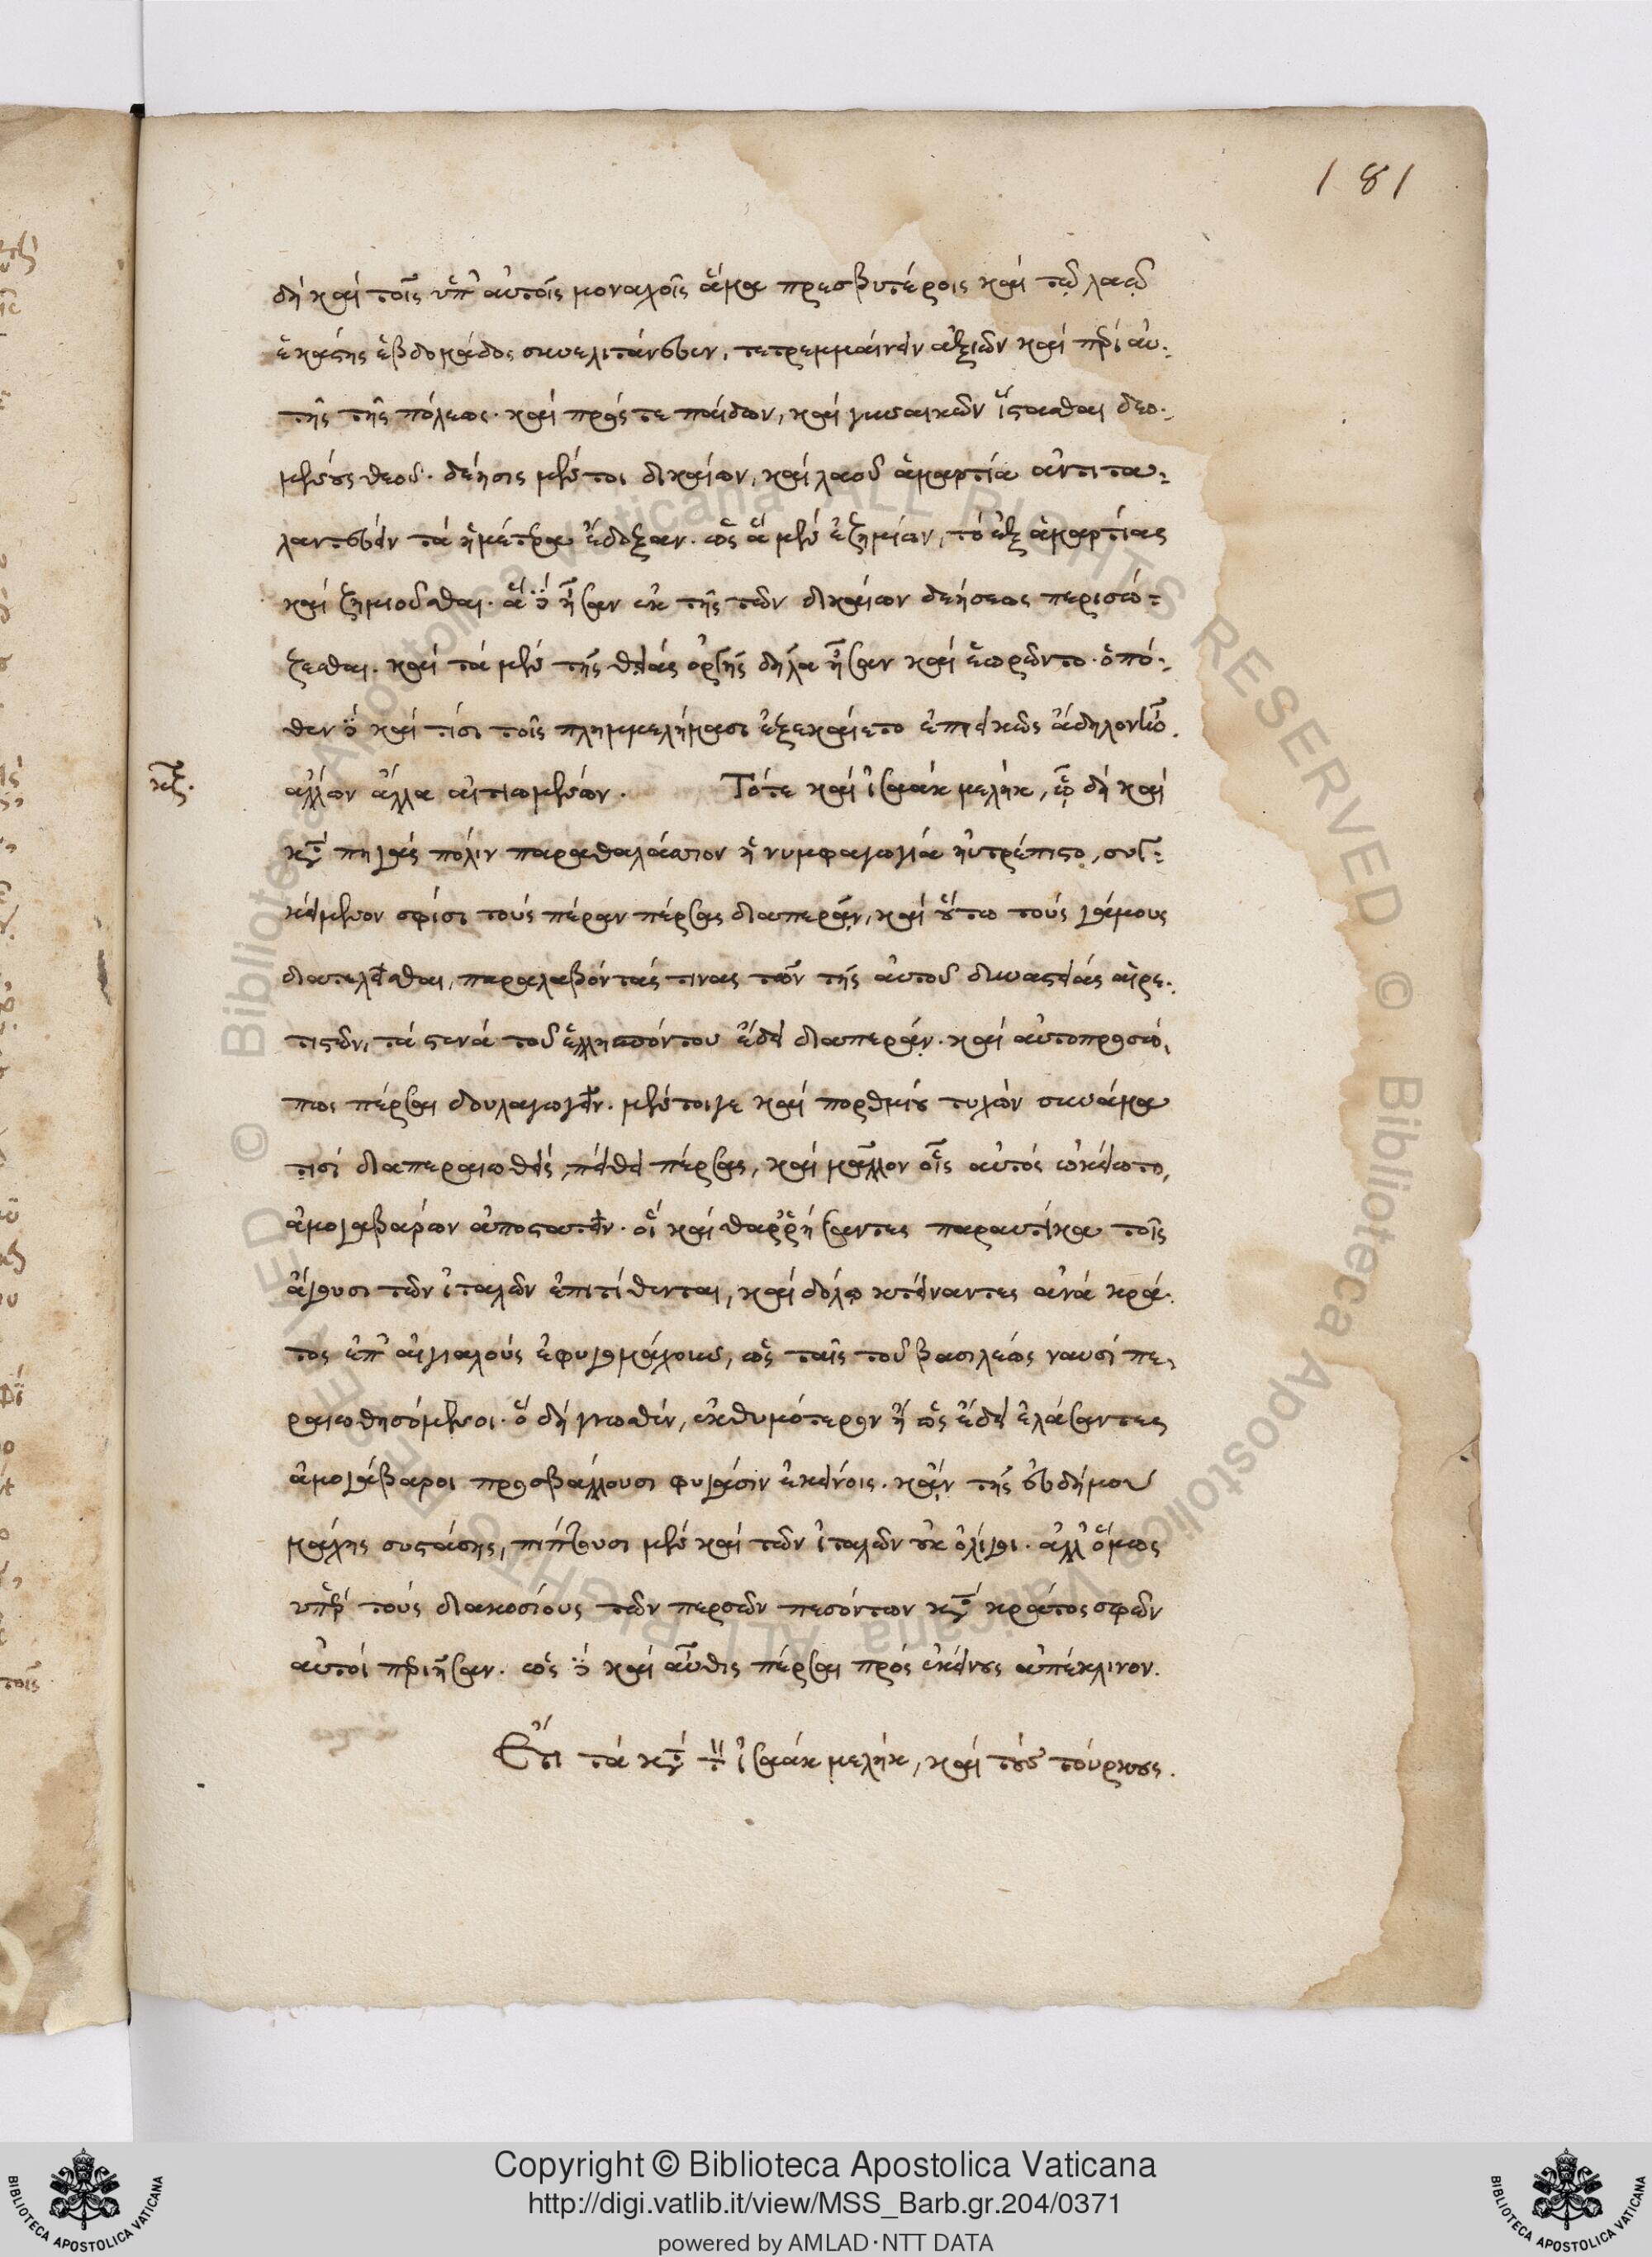 181
δὴ καὶ τοῖς ὑπ' αὐτοῖς μοναχοῖς ἅμα πρεσβυτέροις καὶ τῷ λαῷ
ἑκάστης ἑβδομάδος συνελιτάνευεν, τετρεμμαίνειν ἀξιῶν καὶ περὶ αὐ
τῆς τῆς πόλεως. καὶ πρός τε παίδων, καὶ γυναικῶν ἵστασθαι δεο
μένους θεοῦ. δέησις μέντοι δικαίων, καὶ λαοῦ ἁμαρτία ἀντιτα
λαντεύειν τὰ ἡμέτερα ἔδοξαν. ὡς ἃ μὲν ἐζημίουν, τὸ ἐξ ἁμαρτίας
καὶ ζημιοῦσθαι. ἃ δὲ ἦσαν ἐκ τῆς τῶν δικαίων δεήσεως περισώ
ζεσθαι. καὶ τὰ μὲν τῆς θείας ὀργῆς δῆλα ἦσαν καὶ ἑωρῶντο. ὁπό
θεν δὲ καὶ τίσι τοῖς πλημμελήμασι ἐξεκαίετο ἐπιεικῶς ἄδηλον ἦν.
κζ. ἄλλων ἄλλα αἰτιωμένων. Τότε καὶ ἰσαὰκ μελὴκ, ᾧ δὴ καὶ
κατὰ πηγὰς πόλιν παραθαλάσσιον ἡ νυμφαγωγία ηὐτρέπιστο, συγ
κείμενον σφίσι τοὺς πέραν πέρσας διαπερᾶν, καὶ οὕτω τοὺς γάμους
διατελεῖσθαι, παραλαβόντάς τινας τῶν τῆς αὐτοῦ δυναστείας αἱρε
τιστῶν, τὰ στενὰ τοῦ ἑλλησπόντου ἔδει διαπερᾶν. καὶ αὐτοπροσώ
πως πέρσαι δουλαγωγεῖν. μέντοιγε καὶ πορθμίου τυχὼν συνάμα
τισὶ διαπεραιωθεὶς, πείθει πέρσας, καὶ μᾶλλον οἷς αὐτὸς ᾠκείωτο,
ἀμογαβάρων ἀποστατεῖν. οἳ καὶ θαῤῥήσαντες παραυτίκα τοῖς
ἄγουσι τῶν ἰταλῶν ἐπιτίθενται, καὶ δόλῳ κτείναντες ἀνὰ κρά
τος ἐπ' αἰγιαλοὺς ἐφυγομάχουν, ὡς ταῖς τοῦ βασιλέως ναυσὶ πε
ραιωθησόμενοι. ὃ δὴ γνωσθὲν, ἐκθυμότερον ἢ ὡς ἔδει ἐλάσαντες
ἀμογάβαροι προσβάλλουσι φυγάσιν ἐκείνοις. κἂν τῆς ἐκδήμου
μάχης συστάσης, πίπτουσι μὲν καὶ τῶν ἰταλῶν οὐκ ὀλίγοι. ἀλλ' ὅμως
ὑπὲρ τοὺς διακοσίους τῶν περσῶν πεσόντων κατὰ κράτος σφῶν
αὐτοὶ περιῆσαν. ὡς δὲ καὶ αὖθις πέρσαι πρὸς ἐκείνους ἀπέκλινον.
Ἔτι τὰ κατὰ τὸν ἰσαὰκ μελὴκ, καὶ τοὺς τούρκους.
Copyright © Biblioteca Apostolica Vaticana
http://digi.vatlib.it/view/MSS_Barb.gr.204/0371
powered by AMLAD·NTT DATA